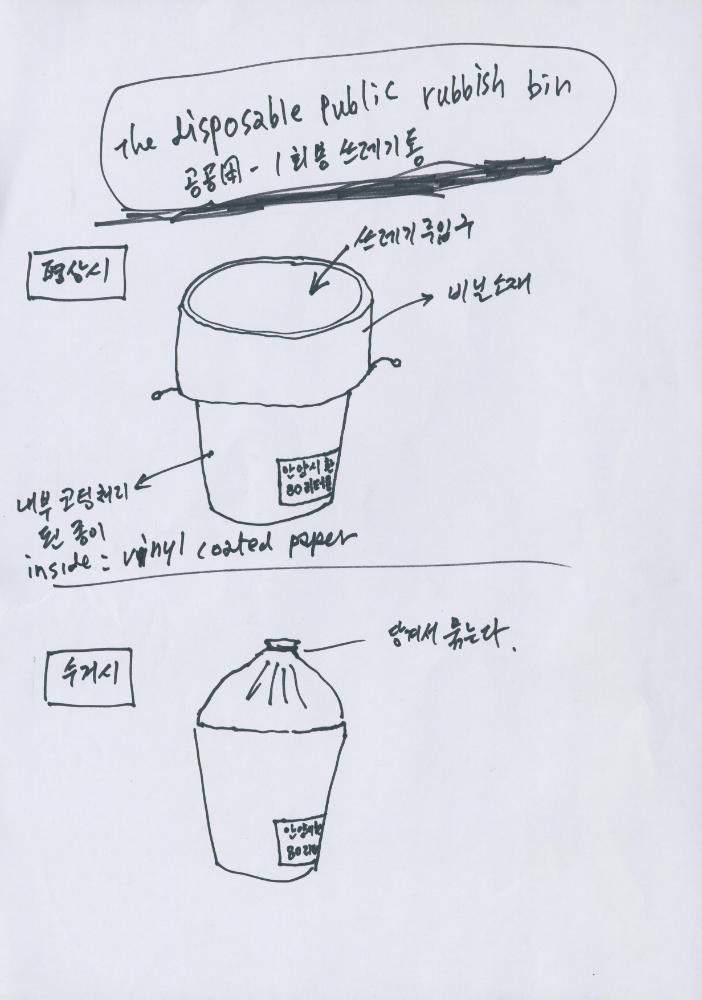 The disposable public rubbish bin
공용用 - 1회용 쓰레기통
평상시
쓰레기투입구
비닐소재
안양시
80리터용
내부 코팅처리
된 종이
inside : vinyl coated paper
수거시
당겨서 묶는다.
안양시
80리터